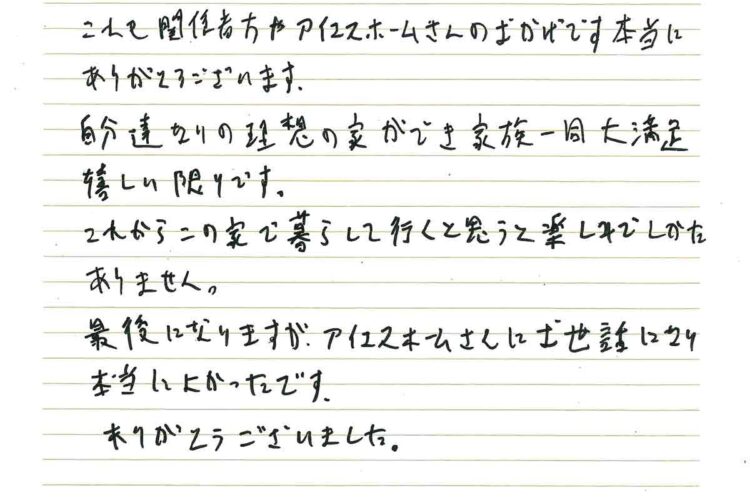 これも関係者方やアイエスホームさんのおかげです本当に
ありがとうございます.
自分達なりの理想の家ができ家族一同大満足
嬉しい限りです。
これからこの家で暮らして行くと思うと楽しみでしかた
ありません。
最後になりますが、アイエスホームさんにお世話になり
本当によかったです.
ありがとうございました。